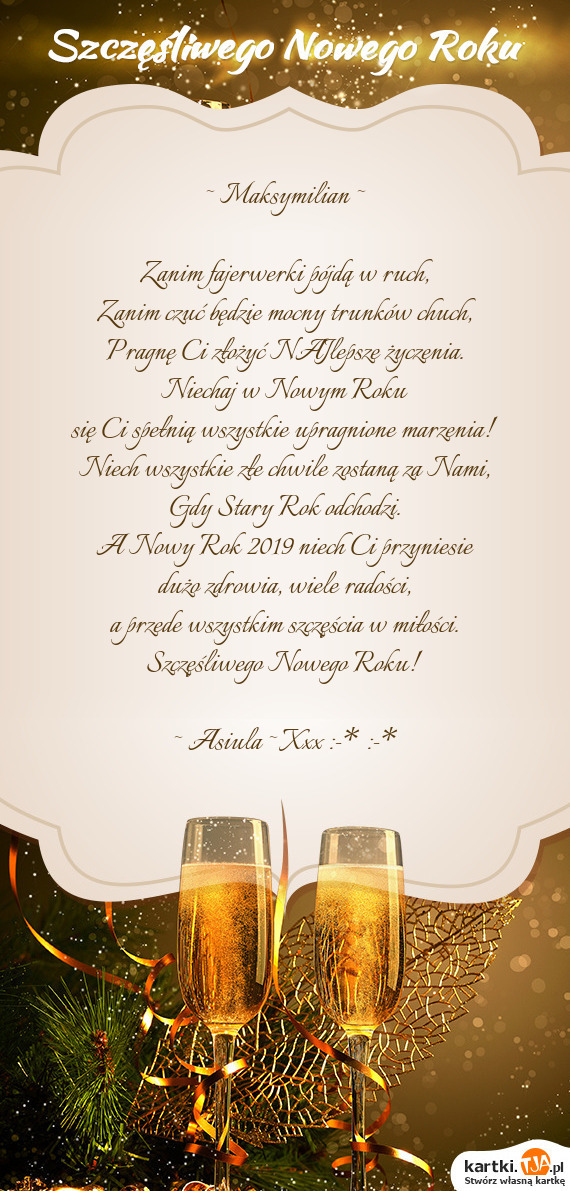 Szczęśliwego Nowego Roku
~ Maksymilian ~
Zanim fajerwerki pójdą w ruch,
Zanim czuć będzie mocny trunków chuch,
Pragnę Ci złożyć NAJlepsze życzenia.
Niechaj w Nowym Roku
się Ci spełnią wszystkie upragnione marzenia!
Niech wszystkie złe chwile zostaną za Nami,
Gdy Stary Rok odchodzi.
A Nowy Rok 2019 niech Ci przyniesie
dużo zdrowia, wiele radości,
a przede wszystkim szczęścia w miłości.
Szczęśliwego Nowego Roku!
~ Asiula ~ Xxx :-* :-*
kartki.TJA.pl
Stwórz własną kartkę